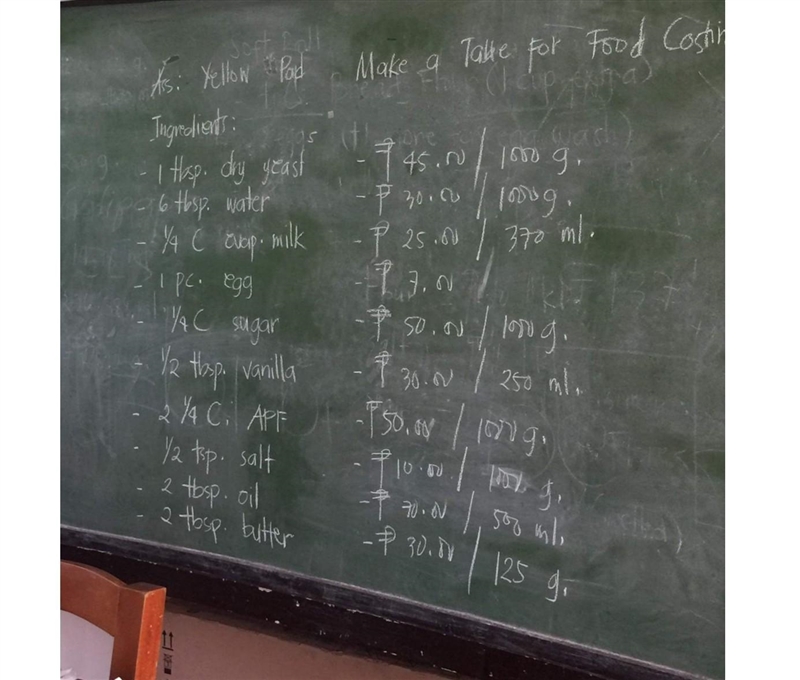 Ass: Yellow Pad Make a Table for Food Costin
Ingredients:
- 1 tbsp. dry yeast - ₱ 45.00 / 1000 g.
- 6 tbsp. water - ₱ 30.00 / 1000 g.
- 1/4 C evap. milk - ₱ 25.00 / 370 ml.
- 1 pc. egg - ₱ 7.00
- 1/4 C sugar - ₱ 50.00 / 1000 g.
- 1/2 tbsp. vanilla - ₱ 30.00 / 250 ml.
- 2 1/4 C. APF - ₱50.00 / 1000 g.
- 1/2 tsp. salt - ₱ 10.00 / g.
- 2 tbsp. oil - ₱ 70.00 / 500 ml.
- 2 tbsp. butter - ₱ 30.00 / 125 g.